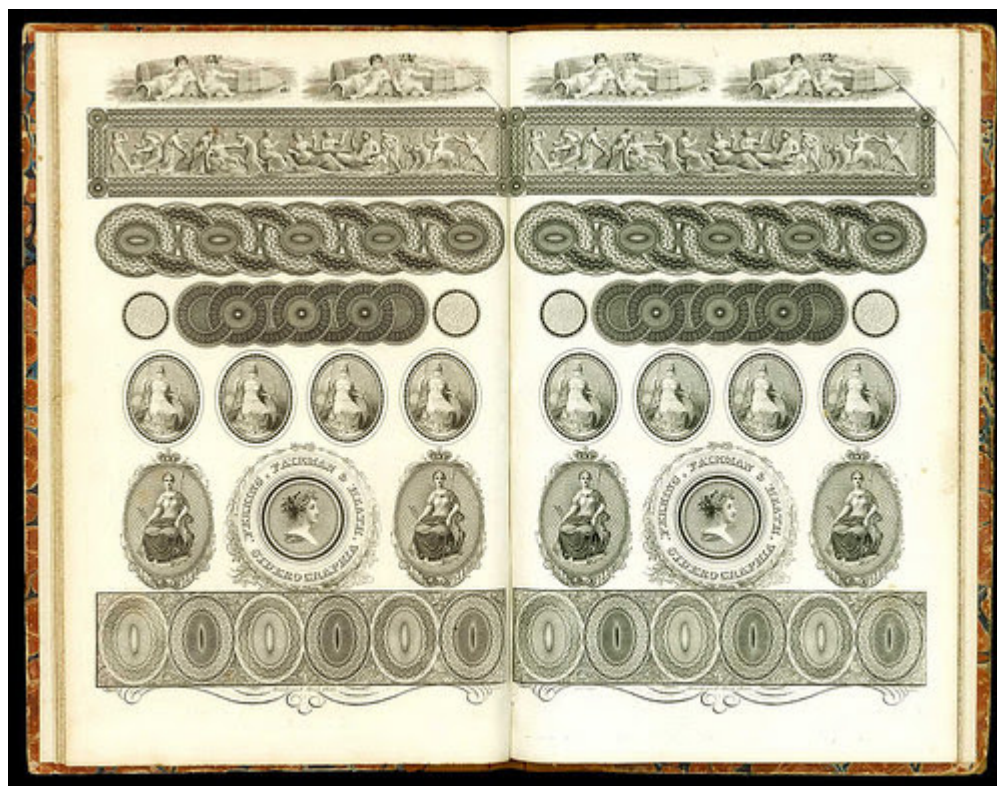 PERKINS, FAIRMAN & HEATH.
SIDEROGRAPHIA
PERKINS, FAIRMAN & HEATH.
SIDEROGRAPHIA